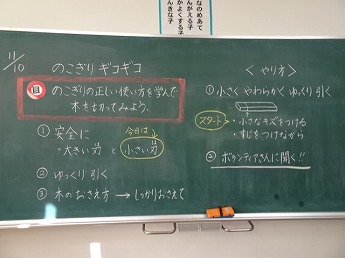 なのめあて
んがえる子
かよくする子
んきな子
11/10
のこぎり ギコギコ
のこぎりの正しい使い方を学んで
木を切ってみよう。
① 安全に
・大きい刃 と 小さい刃
今日は↓
② ゆっくり 引く
③ 木のおさえ方 → しっかりおさえて
〈 やり方 〉
① 小さく やわらかく ゆっくり 引く
スタート ・小さなキズをつける
・すじをつけながら
② ボランティアさんに聞く!!